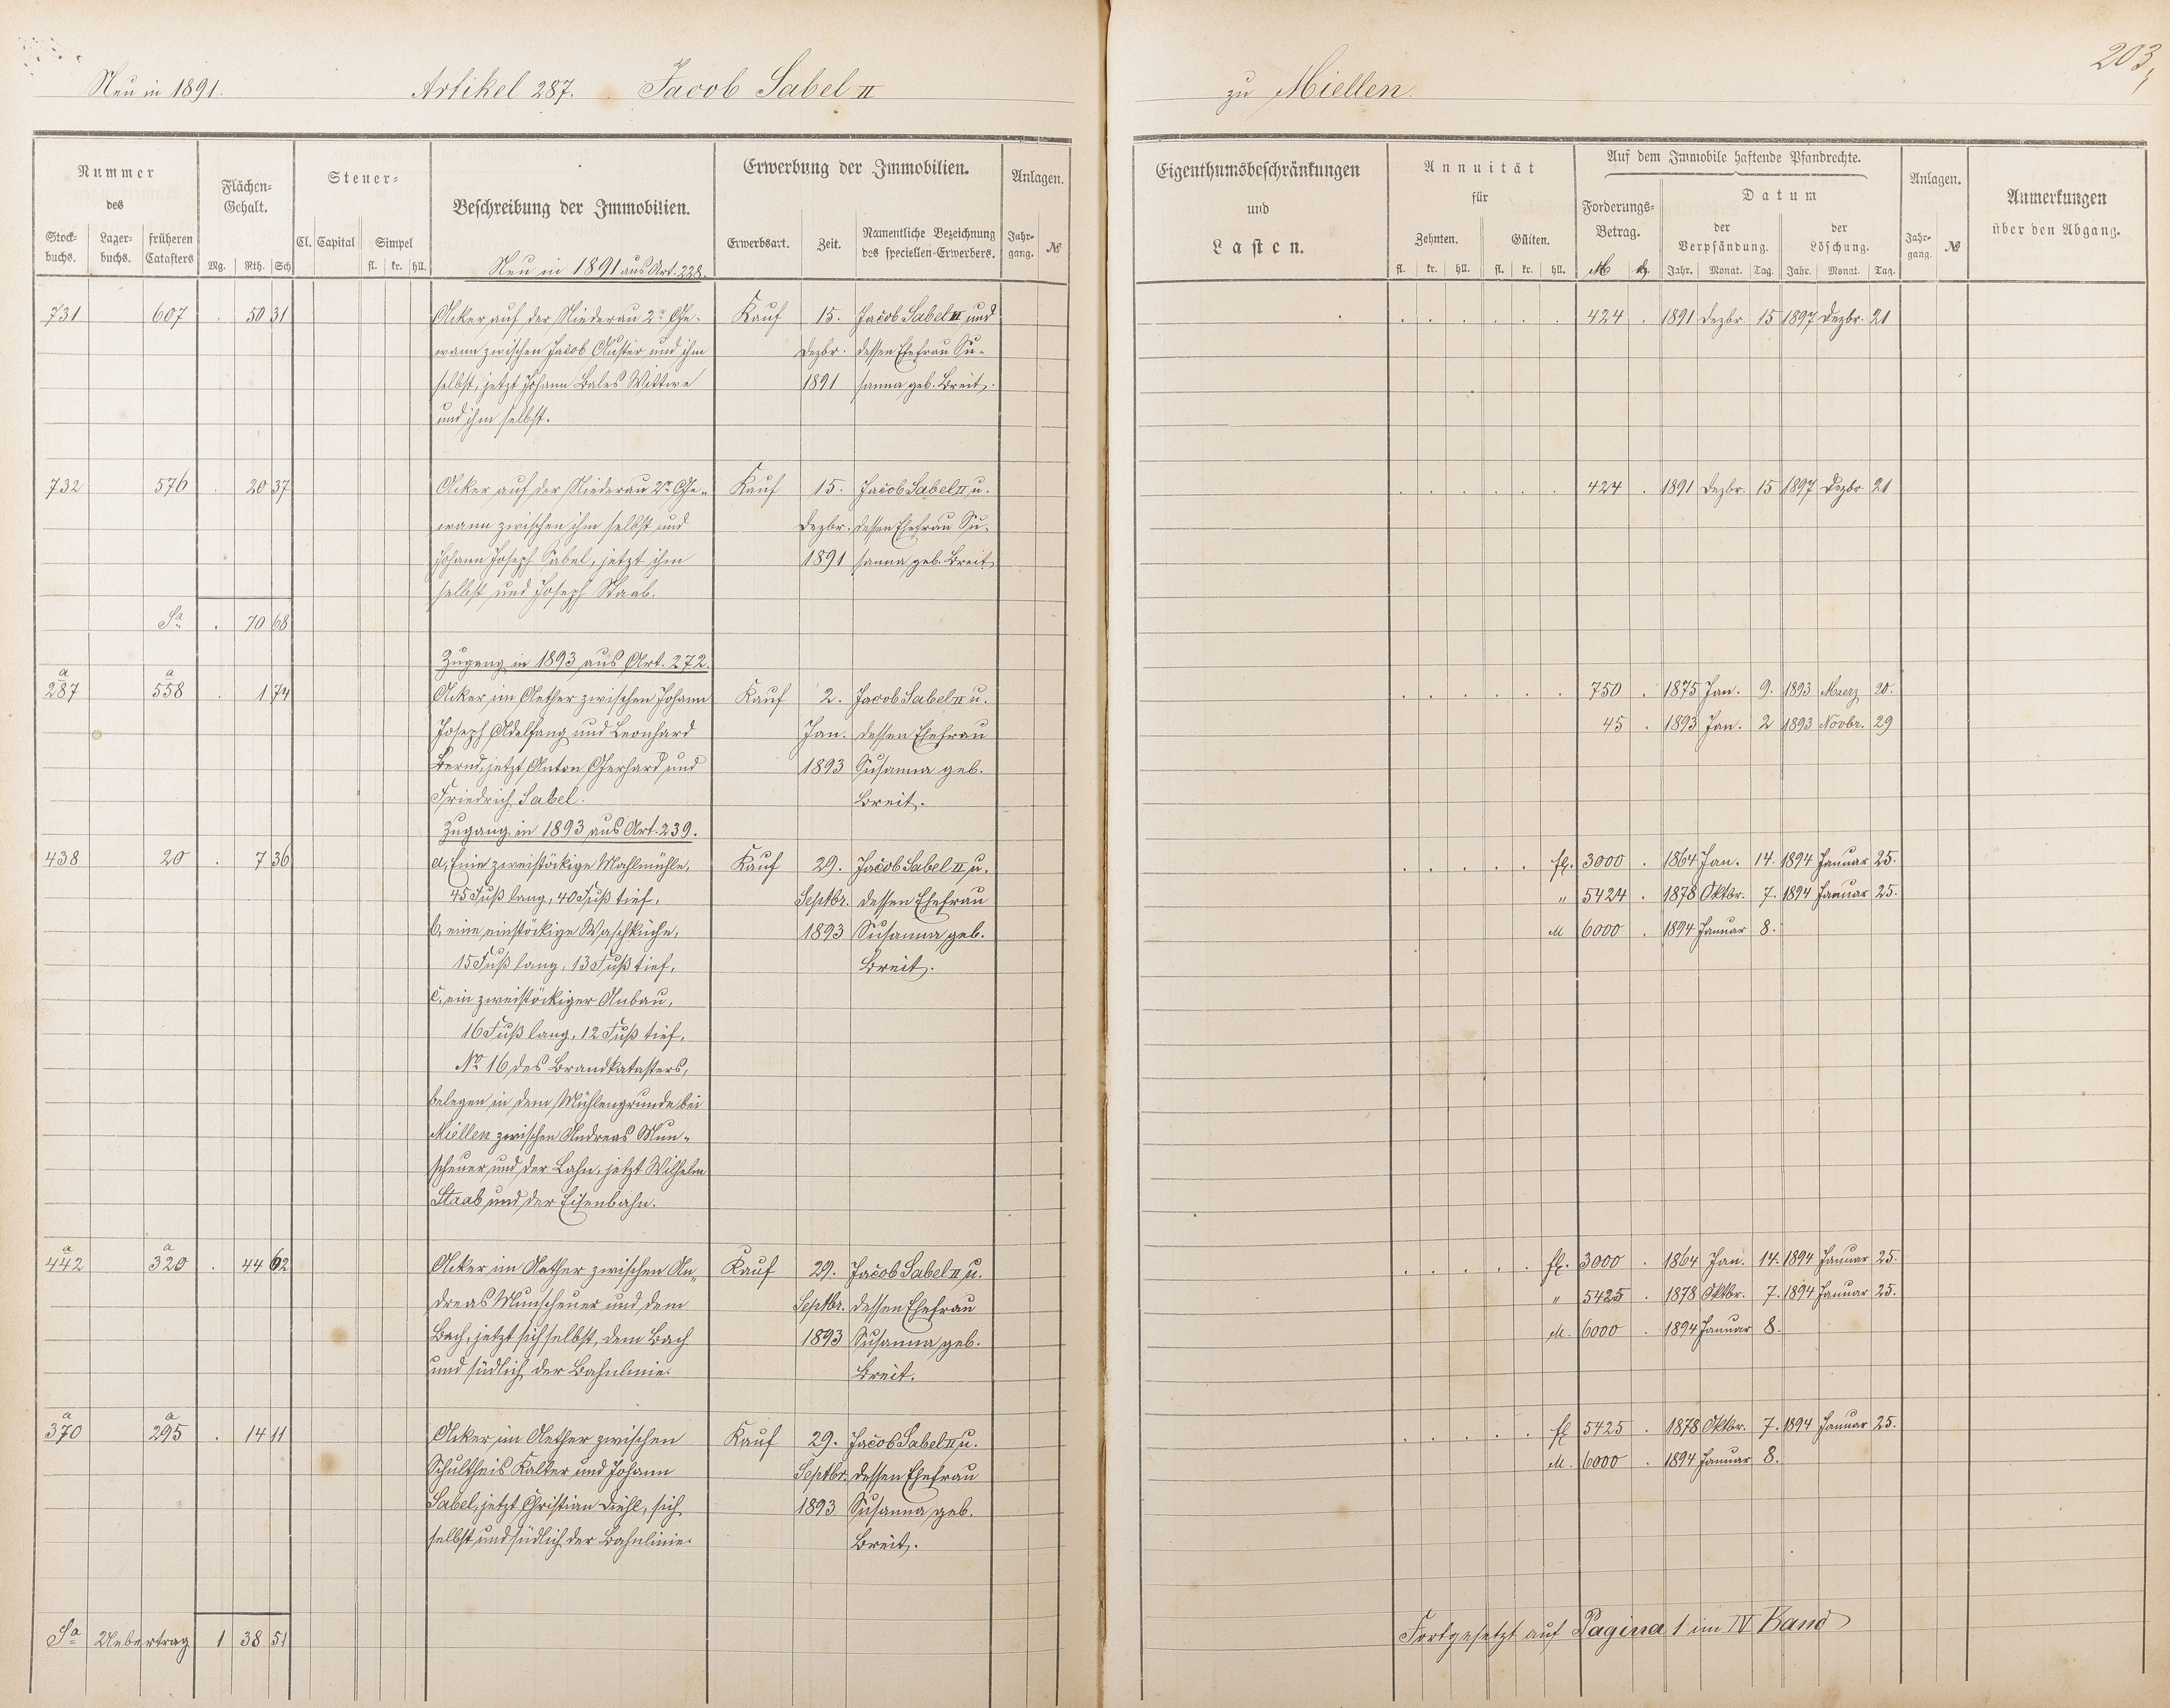 203,
Neu in 1891. Artikel 287. Jacob Sabel II zu Miellen.
Nummer des
Stock-buchs. Lager-buchs. früheren Catasters
Flächen-Gehalt.
Mg. Rth. Sch
Steuer-
Cl. Capital Simpel
fl. kr. hll.
Beschreibung der Immobilien.
Erwerbung der Immobilien.
Erwerbsart. Zeit. Namentliche Bezeichnung des speciellen Erwerbers.
Anlagen.
Jahr-gang. №
Eigenthumsbeschränkungen
und
Lasten.
Annuität
für
Zehnten. Gülten.
fl. kr. hll. fl. kr. hll.
Auf dem Immobile haftende Pfandrechte.
Forderungs-Betrag.
M
Datum
der Verpfändung. der Löschung.
Jahr. Monat. Tag. Jahr. Monat. Tag.
Anlagen.
Jahr-gang. №
Anmerkungen
über den Abgang.
Neu in 1891 aus Art. 228.
731 607 . 50 31 Acker auf der Niederau 2r Ge- Kauf 15. Jacob Sabel II und 424 . 1891 Dezbr. 15 1897 Dezbr. 21
wann zwischen Jacob Auster und ihm Dezbr. dessen Ehefrau Su-
selbst, jetzt Johann Bales Wittwe 1891 sanna geb. Breit.
und ihm selbst.
732 576 . 20 37 Acker auf der Niederau 2r Ge- Kauf 15. Jacob Sabel II u. 424 . 1891 Dezbr. 15 1897 Dezbr. 21
wann zwischen ihm selbst und Dezbr. dessen Ehefrau Su-
Johann Joseph Sabel, jetzt ihm 1891 sanna geb. Breit
selbst und Joseph Staab.
Sa . 70 68
Zugang in 1893 aus Art. 272.
a a
287 558 . 1 74 Acker im Aether zwischen Johann Kauf 2. Jacob Sabel II u. 750 . 1875 Jan. 9. 1893 Maerz 20.
Joseph Adelfang und Leonhard Jan. dessen Ehefrau 45 . 1893 Jan. 2 1893 Novbr. 29
Bernd, jetzt Anton Gerhard und 1893 Susanna geb.
Friedrich Sabel. Breit.
Zugang in 1893 aus Art. 239.
438 20 . 7 36 a, Eine zweistöckige Mahlmühle, Kauf 29. Jacob Sabel II u. fl. 3000 . 1864 Jan. 14. 1894 Januar 25.
45 Fuß lang, 40 Fuß tief, Septbr. dessen Ehefrau " 5424 . 1878 Oktbr. 7. 1894 Januar 25.
b, eine einstöckige Waschküche, 1893 Susanna geb. M 6000 . 1894 Januar 8.
15 Fuß lang, 13 Fuß tief, Breit.
c, ein zweistöckiger Anbau,
16 Fuß lang, 12 Fuß tief,
No 16 des Brandkatasters,
belegen in dem Mühlengrunde bei
Miellen zwischen Andreas Mun-
scheuer und der Lahn, jetzt Wilhelm
Staab und der Eisenbahn.
a a
442 320 . 44 62 Acker im Aether zwischen An- Kauf 29. Jacob Sabel II u. fl. 3000 . 1864 Jan. 14. 1894 Januar 25.
dreas Munscheuer und dem Septbr. dessen Ehefrau " 5425 . 1878 Oktbr. 7. 1894 Januar 25.
Bach, jetzt sich selbst, dem Bach 1893 Susanna geb. M. 6000 . 1894 Januar 8.
und südlich der Bahnlinie. Breit.
a a
370 295 . 14 11 Acker im Aether zwischen Kauf 29. Jacob Sabel II u. fl 5425 . 1878 Oktbr. 7. 1894 Januar 25.
Schultheis Kalter und Johann Septbr. dessen Ehefrau M. 6000 . 1894 Januar 8.
Sabel, jetzt Christian Diehl, sich 1893 Susanna geb.
selbst und südlich der Bahnlinie. Breit.
Sa Uebertrag 1 38 51
Fortgesetzt auf Pagina 1 im IV Band